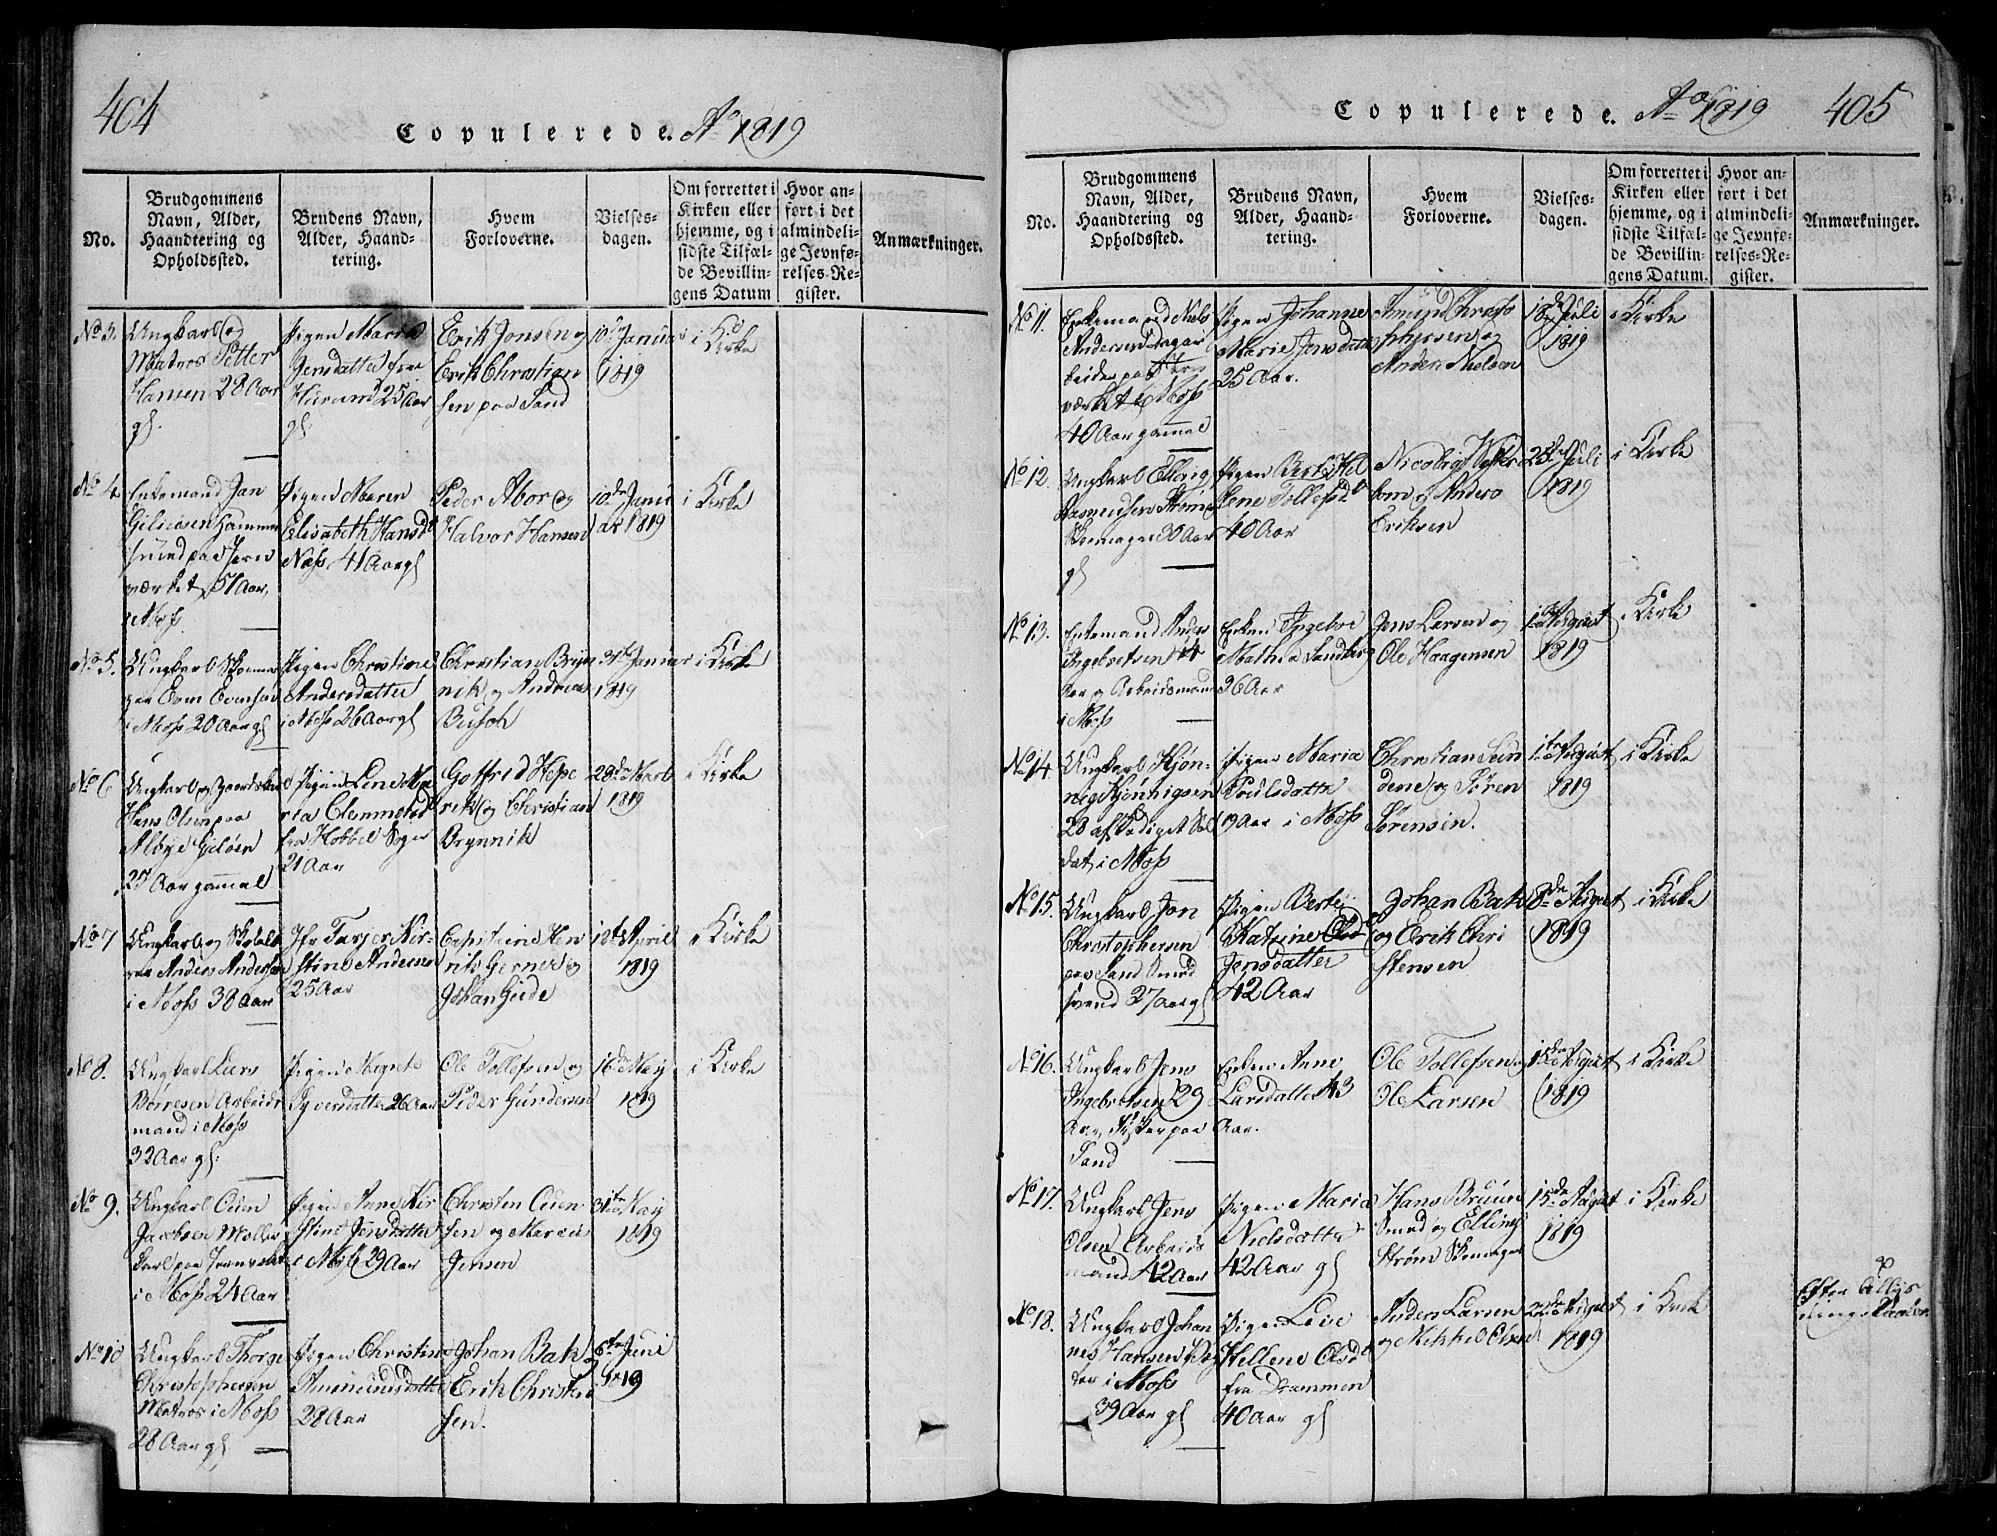 404
Copulerede. Ao 1819
No.
Brudgommens Navn, Alder, Haandtering og Opholdssted.
Brudens Navn, Alder, Haandtering.
Hvem Forloverne.
Vielsesdagen.
Om forrettet i Kirken eller hjemme, og i sidste Tilfælde Bevillingens Datum
Hvor anført i det almindelige Jevnførelses-Register.
Anmærkninger.
No 3.
Ungkarl og
Matros Petter
Hansen 28 Aar
gl.
Pigen Maria
Jensdatter fra
25 Aar
gl.
Erik Jonsen og
Erik Christian
sen paa Sand
10de Januar
1819
i Kirke
No 4
Enkemand Jan
paa Jern
værket 51 Aar,
i Moss.
Pigen Maren
Elisabeth Hansdr
Næss, 41 Aar gl
Peder Abor og
Halvor Hansen
10de Janu
ar 1819
i Kirke
No 5.
Ungkarl Skoema
ger Even Evensen
i Moss 20 Aar gl
Pigen Christine
Andersdatter
i Moss 26 Aar gl
Christian Bryn
nik og Andreas
Busch
31te Januar
1819
i Kirke
No 6
Ungkarl og
Hans Olsen paa
Albye Geløen
27 Aar gammel
Pigen Line Ma
ria Clemmetsdr
fra Hobbel Sogn
21 Aar
Gotfrid Hepe
rik og Christian
Brynnik
28de Marts
1819
i Kirke
No 7
Ungkarl og
Anders Andersen
i Moss 38 Aar
Jfr Torjer Kir-
stine Andersen
25 Aar
Capitaine Hen
rik Gerner og
Johan Gude
18de April
1819
i Kirke
No 8.
Ungkarl Lars
Børresen Arbeids
mand i Moss
32 Aar gl.
Pigen Margrete
Syversdatter 26 Aar
Ole Tollefsen og
Peder Gundersen
16de Maij
1819
i Kirke
No 9.
Ungkarl Ouen
Jacobsen Møller
karl paa Jernverket
i Moss 24 Aar
Pigen Anne Kir
stine Jensdatter
i Moss 29 Aar
Christen Ouen
sen og Marcus
Jensen
31te Maij
1819
No 10
Ungkarl Thorge
Christophersen
Matros i Moss
28 Aar gl
Pigen Christine
Amundsdatter
28 Aar
Johan Bak og
Erik Christen
sen.
6te Juni
1819
Copulerede. Ao 1819
405
No.
Brudgommens Navn, Alder, Haandtering og Opholdssted.
Brudens Navn, Alder, Haandtering.
Hvem Forloverne.
Vielsesdagen.
Om forrettet i Kirken eller hjemme, og i sidste Tilfælde Bevillingens Datum.
Hvor anført i det almindelige Jevnførelses-Register.
Anmærkninger.
No 11.
Enkemand Niels
Andersen Dagar
beider paa Jern
værket i Moss
40 Aar gammel
Pigen Johanne
Marie Jensdatter
25 Aar.
Amun Christo
phersen og
Anders Nielsen
18de Juli
1819
i Kirke
No 12.
Ungkarl Elling
Rasmusen Strøm
Skomager 30 Aar
gl
Pigen Berte He
lene Tollefsdr
40 Aar
Nicolay
og Anders
Eriksen
25de Juli
1819
i Kirke
No 13.
Enkemand Anders
Ingebretsen 44
Aar og Arbeidsmand
i Moss
Enken Ingebor
Mathea Sandberg
36 Aar
Jens Larsen og
Ole Haagensen
1ste August
1819
i Kirke
No 14.
Ungkarl Kjøn-
nig Kjønnigsen
28 Aar
dat i Moss
Pigen Maria
Poulsdatter
19 Aar i Moss
Christian Sun
dene og Søren
Sørensen.
1ste August
1819
i Kirke
No 15.
Ungkarl Jon
Christophersen
paa Sand Smed
svend 27 Aar gl
Pigen Berte
Katrine Olsd
Jensdatter
42 Aar
Johan Bak
og Erik Chri
stensen
8de August
1819
i Kirke
No 16.
Ungkarl Jens
Ingebretsen 29
Aar, Fisker paa
Sand
Enken Anne
Larsdatter 43
Aar.
Ole Tollefsen og
Ole Larsen
15de August
1819
i Kirke
No 17.
Ungkarl Jens
Olsen Arbeids
mand 42 Aar
Pigen Maria
Nielsdatter
42 Aar gl
Hans Bruun
Smed og Elling
Strøm Skomager
15de August
1819
i Kirke
No 18.
Ungkarl Johan
nes Hansen
i Moss
39 Aar gl
Pigen Lene
Hellene Olsdr
fra Drammen
40 Aar gl
Anders Larsen
og Mikkel Olsen
22de August
1819
i Kirke
Efter